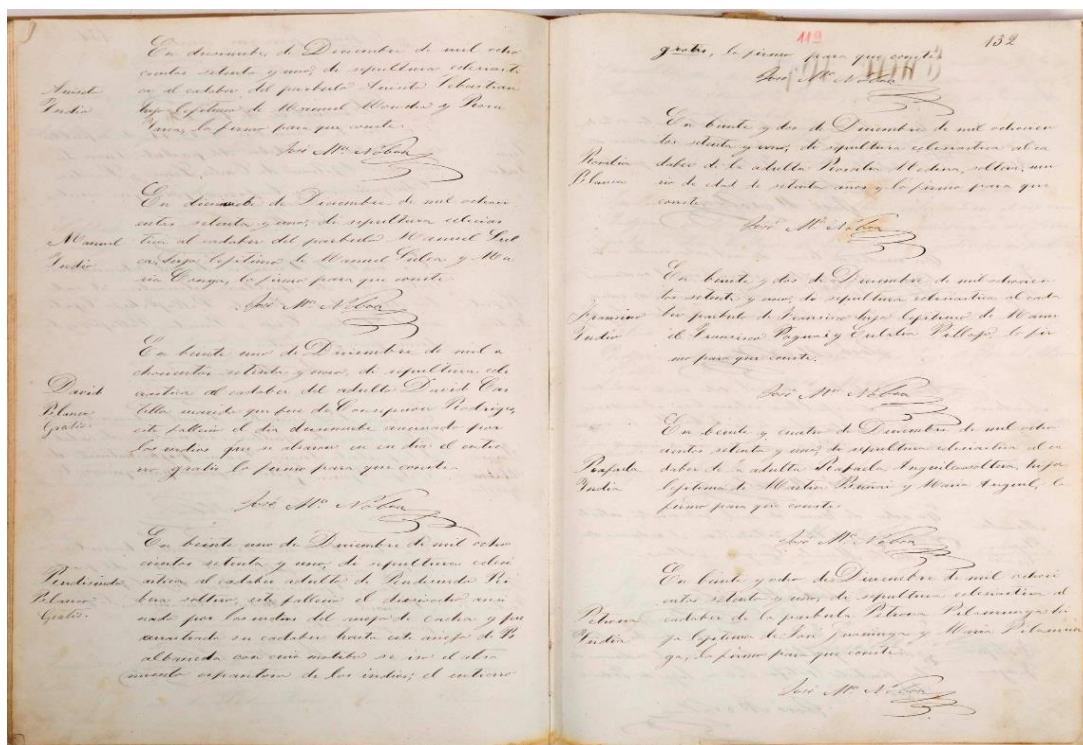 Aniseto
India
En diesinuebe de Diciembre de mil ocho
cientos setenta y uno, di sepultura eclesiasti
ca al cadaber del parbulo Aniseto Sebastian
hijo lejitimo de Manuel y Rosa
lo firmo para que conste.
José Ma. Nóboa
Manuel
Indio
En de Diciembre de mil ochoci
entos setenta y uno, di sepultura eclecias
tica al cadaber del parbulo Manuel
hijo lejitimo de Manuel y Ma
ria lo firmo para que conste
José Ma. Nóboa
David
Blanco
Gratis.
En beinte uno de Diciembre de mil o
chocientos setenta y uno, di sepultura ecle
ciastica al cadaber del adulto David Cas
tillo marido que fue de Concepcion Rodrigues,
este fallecio el dia diesinuebe asesinado por
los indios que se alsaron en ese dia el entie
rro, gratis lo firmo para que conste
José Ma. Nóboa
Blanco
Gratis.
En beinte uno de Diciembre de mil ocho
cientos setenta y uno, di sepultura eclesi
astica al cadaber adulto de Ri
bera soltero, este fallecio el diesiocho asesi
nado por los indios del anejo de Cacha y fue
arrastrado su cadaber hasta este anejo de
con cuio motibo se iso el alsa
miento espantoso de los indios; el entierro
119
132
gratis, lo firmo para que conste
José Ma. Nóboa
Rosalia
Blanca
En beinte y dos de Diciembre de mil ochocien
tos setenta y uno, di sepultura eclesiastica al ca
daber de la adulta Rosalia Medina, soltera, mu
rio de edad de setenta años y lo firmo para que
conste
José Ma. Nóboa
Francisco
Indio
En beinte y dos de Diciembre de mil ochocien
tos setenta y uno, di sepultura eclesiastica al cada
ber parbulo de Francisco hijo lejitimo de Manu
el Francisco y Eulalia lo fir
mo para que conste.
José Ma. Nóboa
Rafaela
India
En beinte y cuatro de Diciembre de mil ocho
cientos setenta y uno, di sepultura eclesiastica al ca
daber de la adulta Rafaela soltera, hija
lejitima de Martin y Maria lo
firmo para que conste
José Ma. Nóboa
Petrona
India
En beinte y ocho de Diciembre de mil ochoci
entos setenta y uno, di sepultura eclesiastica al
cadaber de la parbula Petrona Pilamunga hi
ja lejitima de José y Maria Pilamun
ga, lo firmo para que conste
José Ma. Nóboa